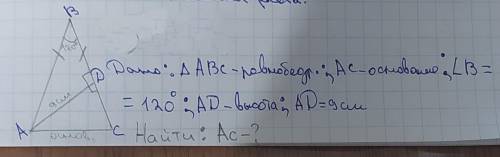 B
120°
D
9см
A
C
Дано: ΔABC-равнобедр.; AC-основание; ∠B=
=120°; AD-высота; AD=9см
Найти: AC-?